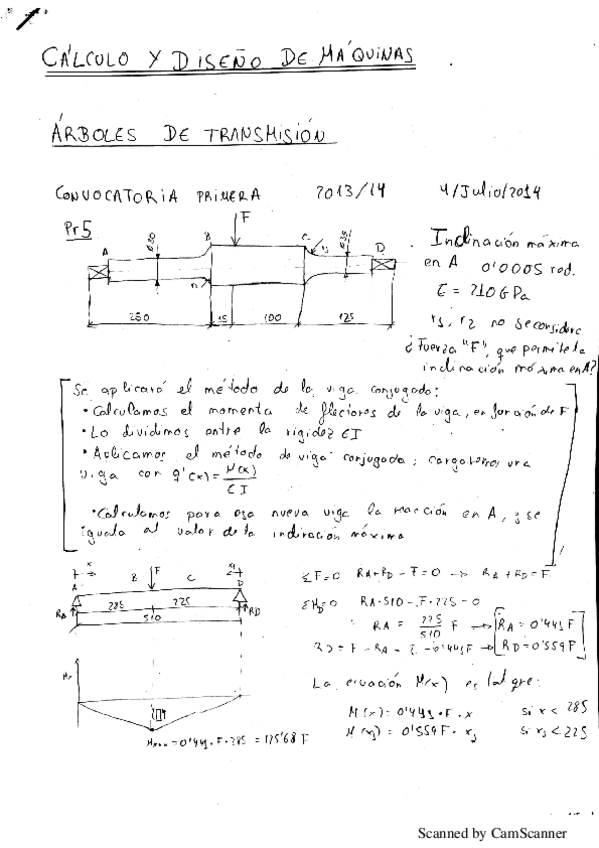 CÁLCULO Y DISEÑO DE MÁQUINAS
ÁRBOLES DE TRANSMISIÓN
CONVOCATORIA PRIMERA 2013/14 4/Julio/2014
Pr 5
F
A B C D
Ø30 Ø35
r1 r2
250 35 100 125
Inclinación máxima
en A 0'0005 rad.
E = 210 GPa
r1, r2 no se considera
¿Fuerza "F", que permite la
inclinación máxima en A?
Se aplicará el método de la viga conjugada:
• Calculamos el momento de flectores de la viga, en función de F
• Lo dividimos entre la rigidez EI
• Aplicamos el método de viga conjugada; cargaremos una
viga con q'(x) = M(x)
EI
• Calculamos para esa nueva viga la reacción en A, y se
iguala al valor de la inclinación máxima
x
A B F C D
RA 285 225 RD
510
ΣF=0 RA+RD-F=0 → RA+RD=F
ΣMD=0 RA·510-F·225=0
RA = 225 F → RA = 0'441F
510
RD = F - RA = F - 0'441F → RD = 0'559F
La ecuación M(x) es tal que:
M(x) = 0'441·F·x si x < 285
M(x1) = 0'559F·x1 si x1 < 225
Mmax = 0'441·F·285 = 125'68 F
Scanned by CamScanner